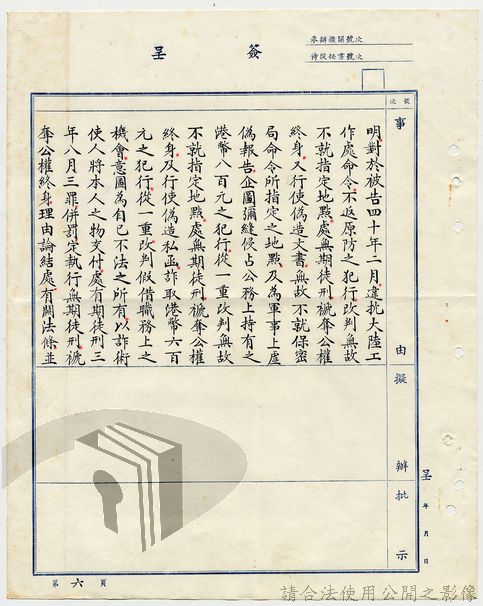 承辦機關號次
侍從秘書號次
簽呈
號次
事由
擬辦
批示
呈 年 月 日
明對於被告四十年二月違抗大陸工
作處命令不返原防之犯行改判無故
不就指定地點處無期徒刑褫奪公權
終身又行使偽造文書無故不就保密
局命令所指定之地點及為軍事上虛
偽報告企圖彌縫侵占公務上持有之
港幣八百元之犯行從一重改判無故
不就指定地點處無期徒刑褫奪公權
終身及行使偽造私函詐取港幣六百
元之犯行從一重改判假借職務上之
機會意圖為自己不法之所有以詐術
使人將本人之物交付處有期徒刑三
年八月三罪併罰定執行無期徒刑褫
奪公權終身理由論結處有關法條並
第六頁
請合法使用公開之影像